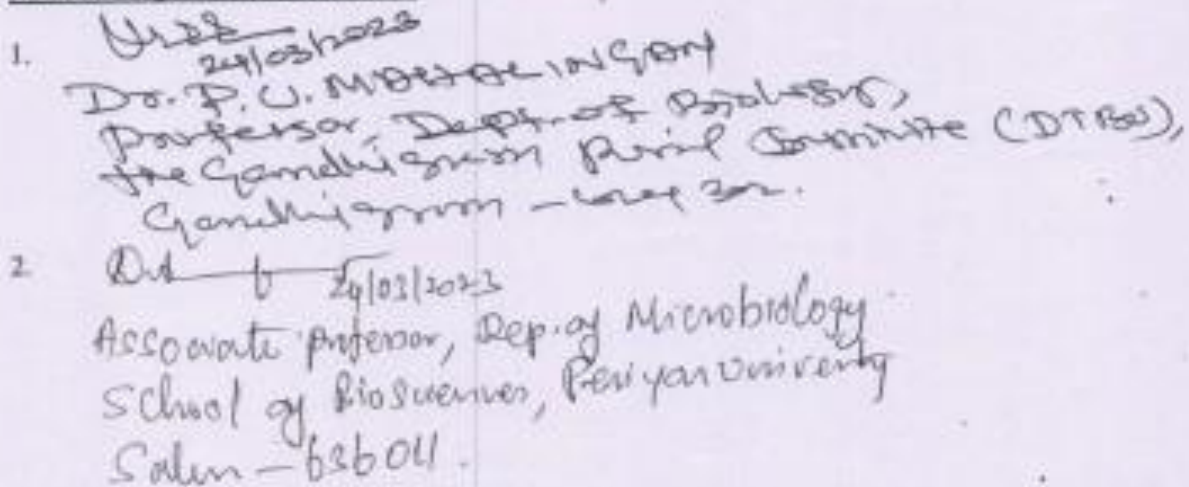 1.
24/03/2023
Dr. P. U. MAHALINGAM
Professor, Dept. of Biology,
the Gandhigram Rural Institute (DTBU),
Gandhigram -
2
24/03/2023
Associate professor, Dep. of Microbiology
School of Biosciences, Periyar University
Salem - 636011.